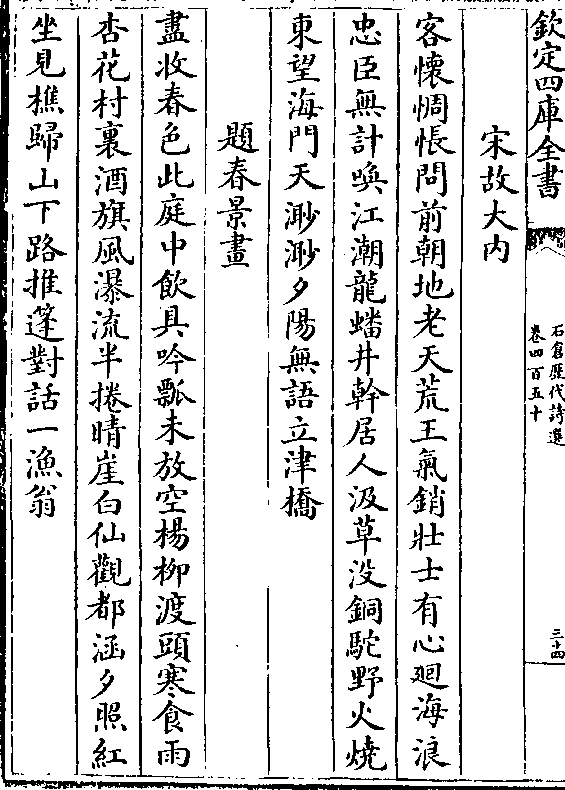 欽定四庫全書
石倉歷代詩選
卷四百五十
三十四
宋故大内
客懷惆悵問前朝地老天荒王氣銷壯士有心廻海浪
忠臣無計喚江潮龍蟠井幹居人汲草没銅駝野火燒
東望海門天渺渺夕陽無語立津橋
題春景畫
盡妝春色此庭中飲具吟瓢未放空楊柳渡頭寒食雨
杏花村裏酒旗風瀑流半捲晴崖白仙觀都涵夕照紅
坐見樵歸山下路推蓬對話一漁翁